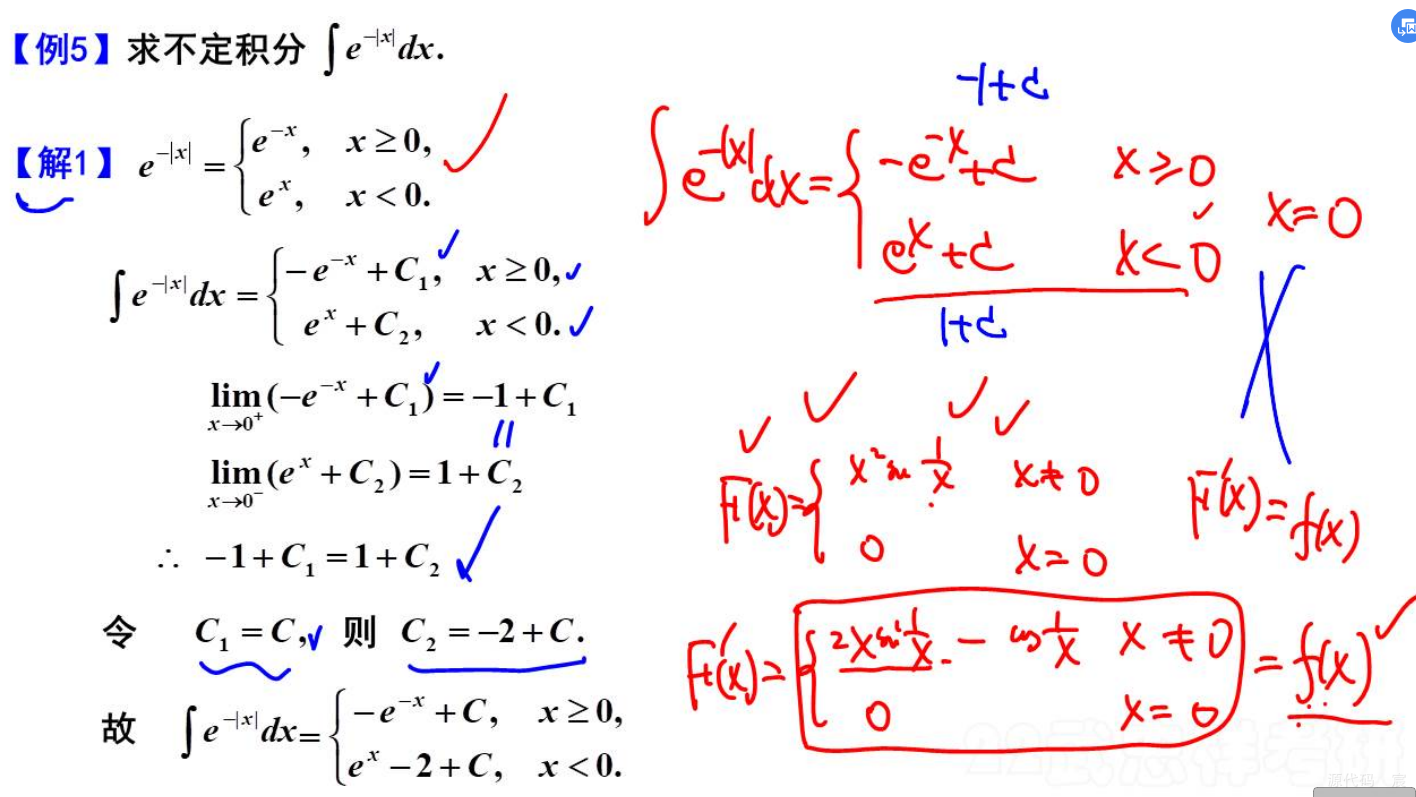 【例5】求不定积分 ∫e^{-|x|}dx.
【解1】 e^{-|x|} = { e^{-x}, x ≥ 0,
e^{x}, x < 0.
∫e^{-|x|}dx = { -e^{-x} + C₁, x ≥ 0,
e^{x} + C₂, x < 0.
lim_{x→0⁺}(-e^{-x} + C₁) = -1 + C₁
lim_{x→0⁻}(e^{x} + C₂) = 1 + C₂
∴ -1 + C₁ = 1 + C₂
令 C₁ = C, 则 C₂ = -2 + C.
故 ∫e^{-|x|}dx = { -e^{-x} + C, x ≥ 0,
e^{x} - 2 + C, x < 0.
-1+C
∫e^{-|x|}dx = { -e^{-x}+C x ≥ 0
e^{x}+C x < 0
x = 0
1+C
F(x) = { x² sin 1/x x ≠ 0
0 x = 0
F'(x) = f(x)
F'(x) = { 2x sin 1/x - cos 1/x x ≠ 0
0 x = 0
= f(x)
22武忠祥考研
源代码 宸